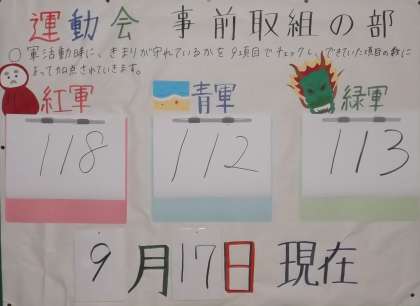 運動会 事前取組の部
○軍活動時に、きまりが守れているかを9項目でチェックし、できていた項目の数に
よって加点されていきます。
紅軍 青軍 緑軍
118 112 113
9月17日 現在